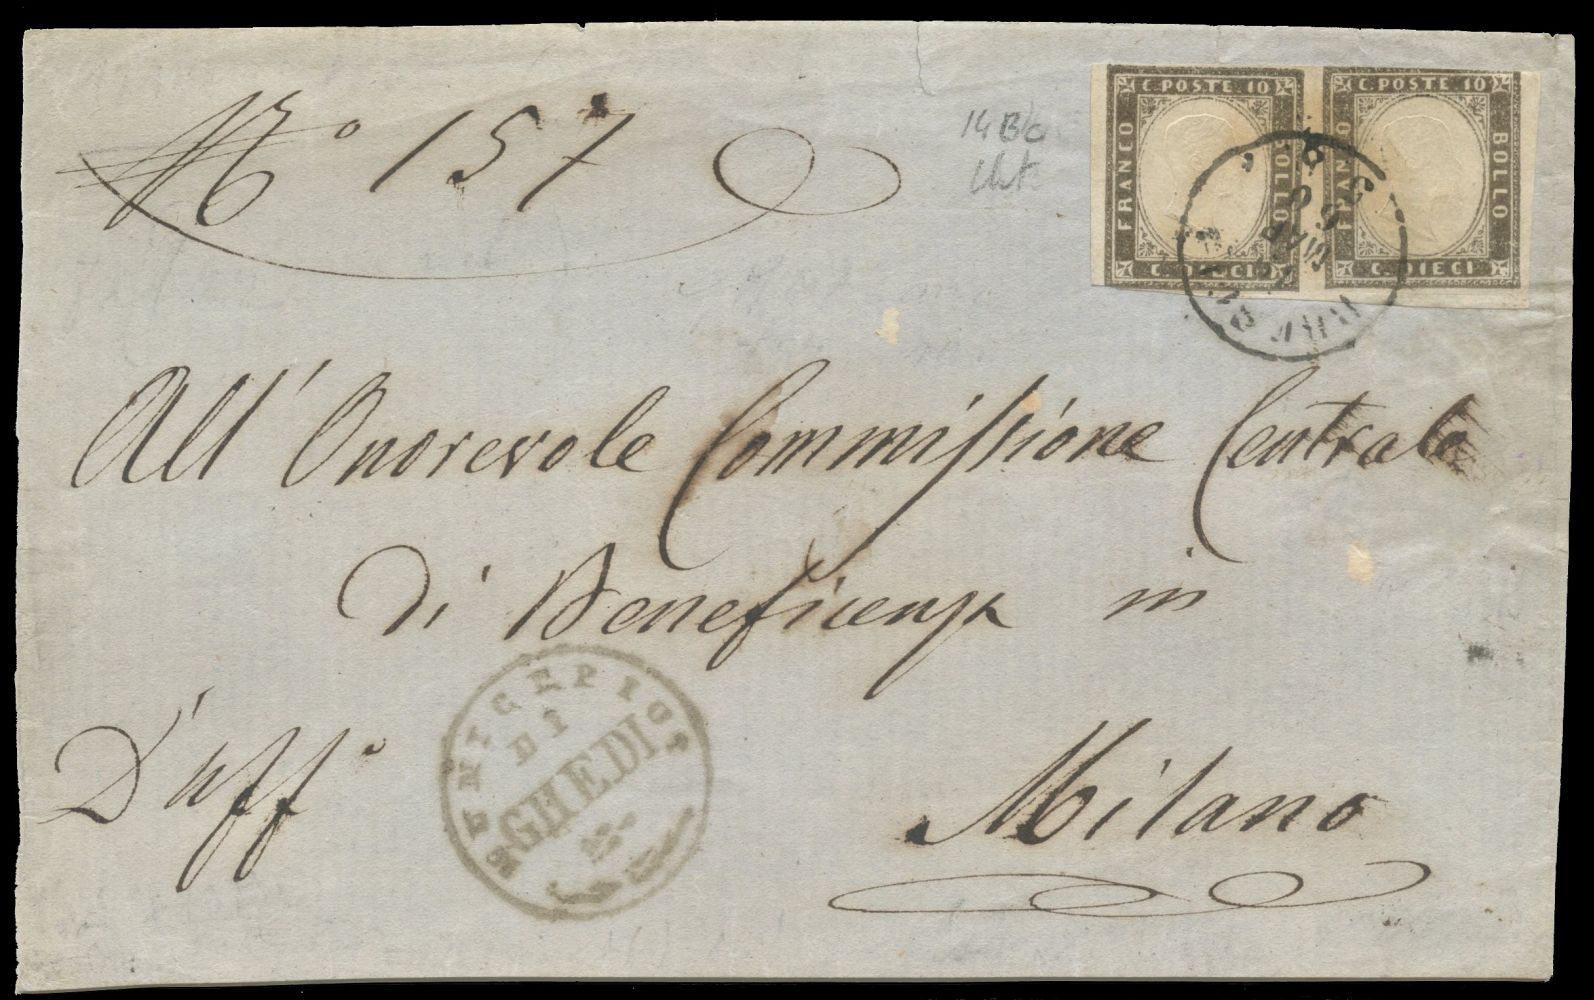 N.° 157
14 B/c
C. POSTE 10 C. POSTE 10
FRANCO BOLLO FRANCO BOLLO
C. DIECI C. DIECI
MAR
63
All' Onorevole Commissione Centrale
di Beneficenza in
Milano
D'uff°
MUNICIPIO
DI
GHEDI